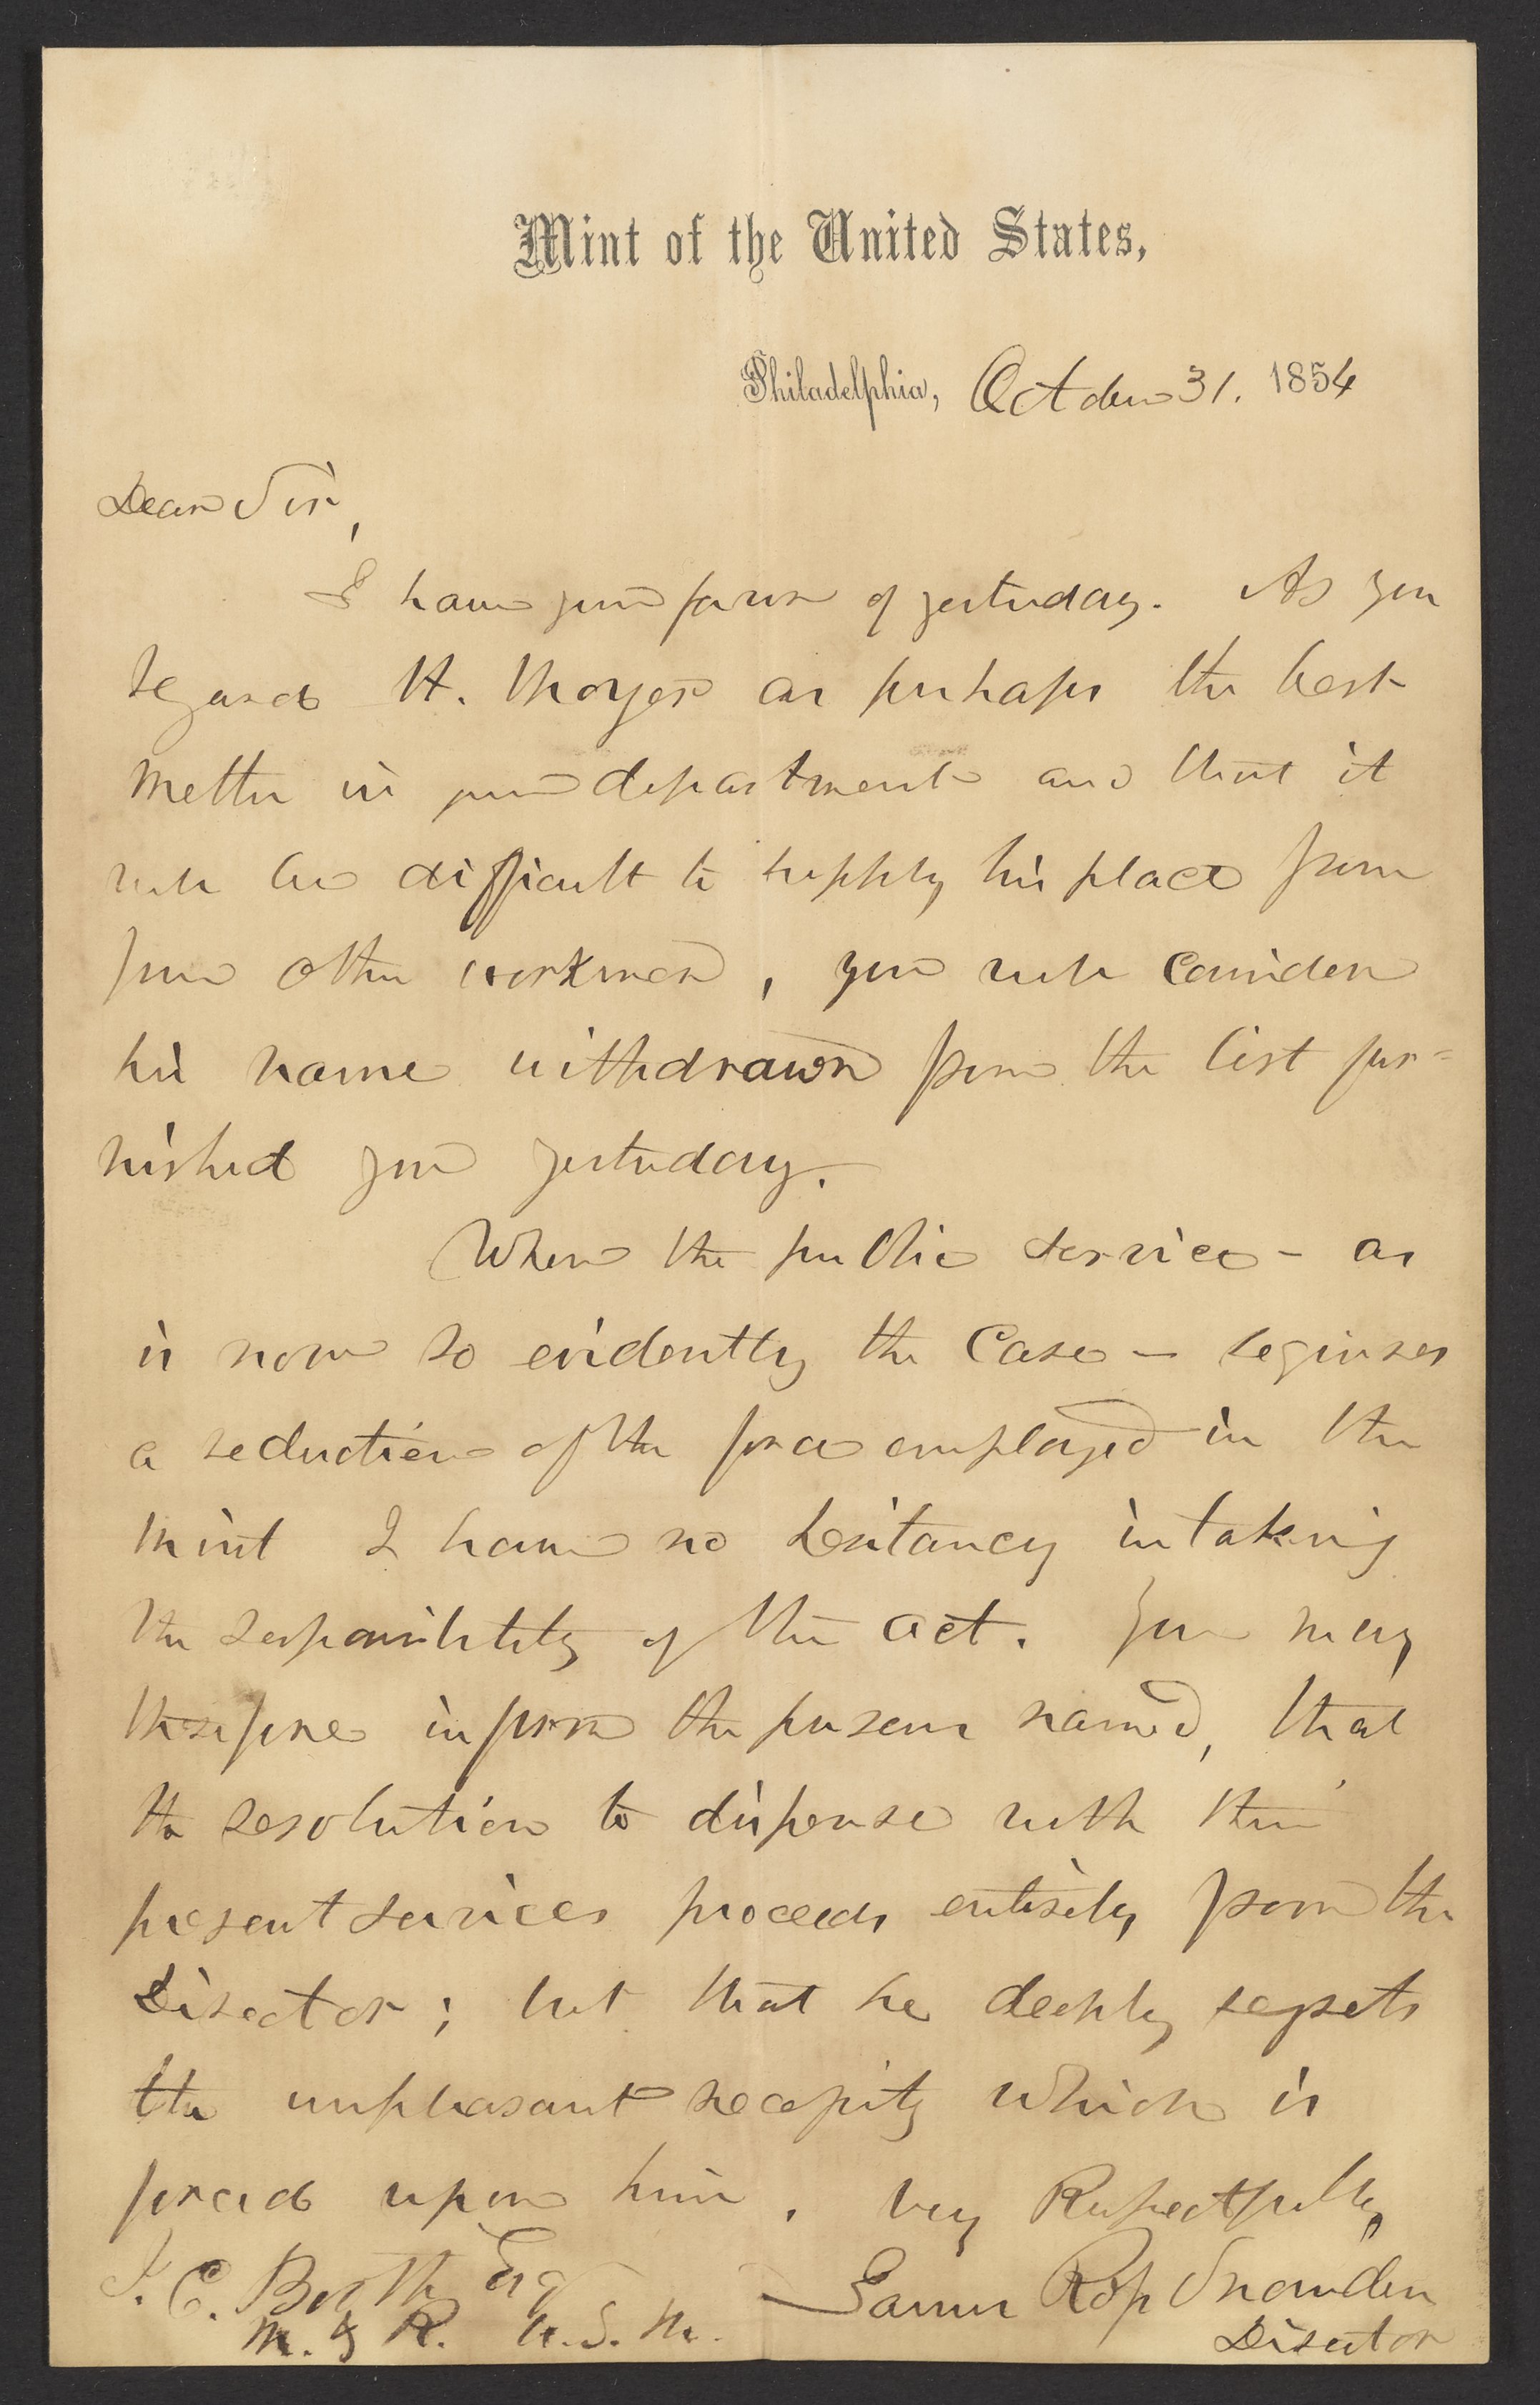 Mint of the United States,
Philadelphia, October 31. 1854
Dear Sir,
I have your favor of yesterday. As you
regard H. Moyer as perhaps the best
Melter in your department and that it
will be difficult to supply his place from
your other workmen, you will consider
his name withdrawn from the list fur=
nished you yesterday.
When the public service - as
is now so evidently the case - requires
a reduction of the force employed in the
Mint I have no hesitancy in taking
the responsibility of the act. You may
therefore inform the persons named, that
the resolution to dispense with their
present services proceeds entirely from the
Director; but that he deeply regrets
the unpleasant necessity which is
forced upon him. Very Respectfully,
J. C. Booth Esq
James Ross Snowden
M. & R. U.S.M.
Director